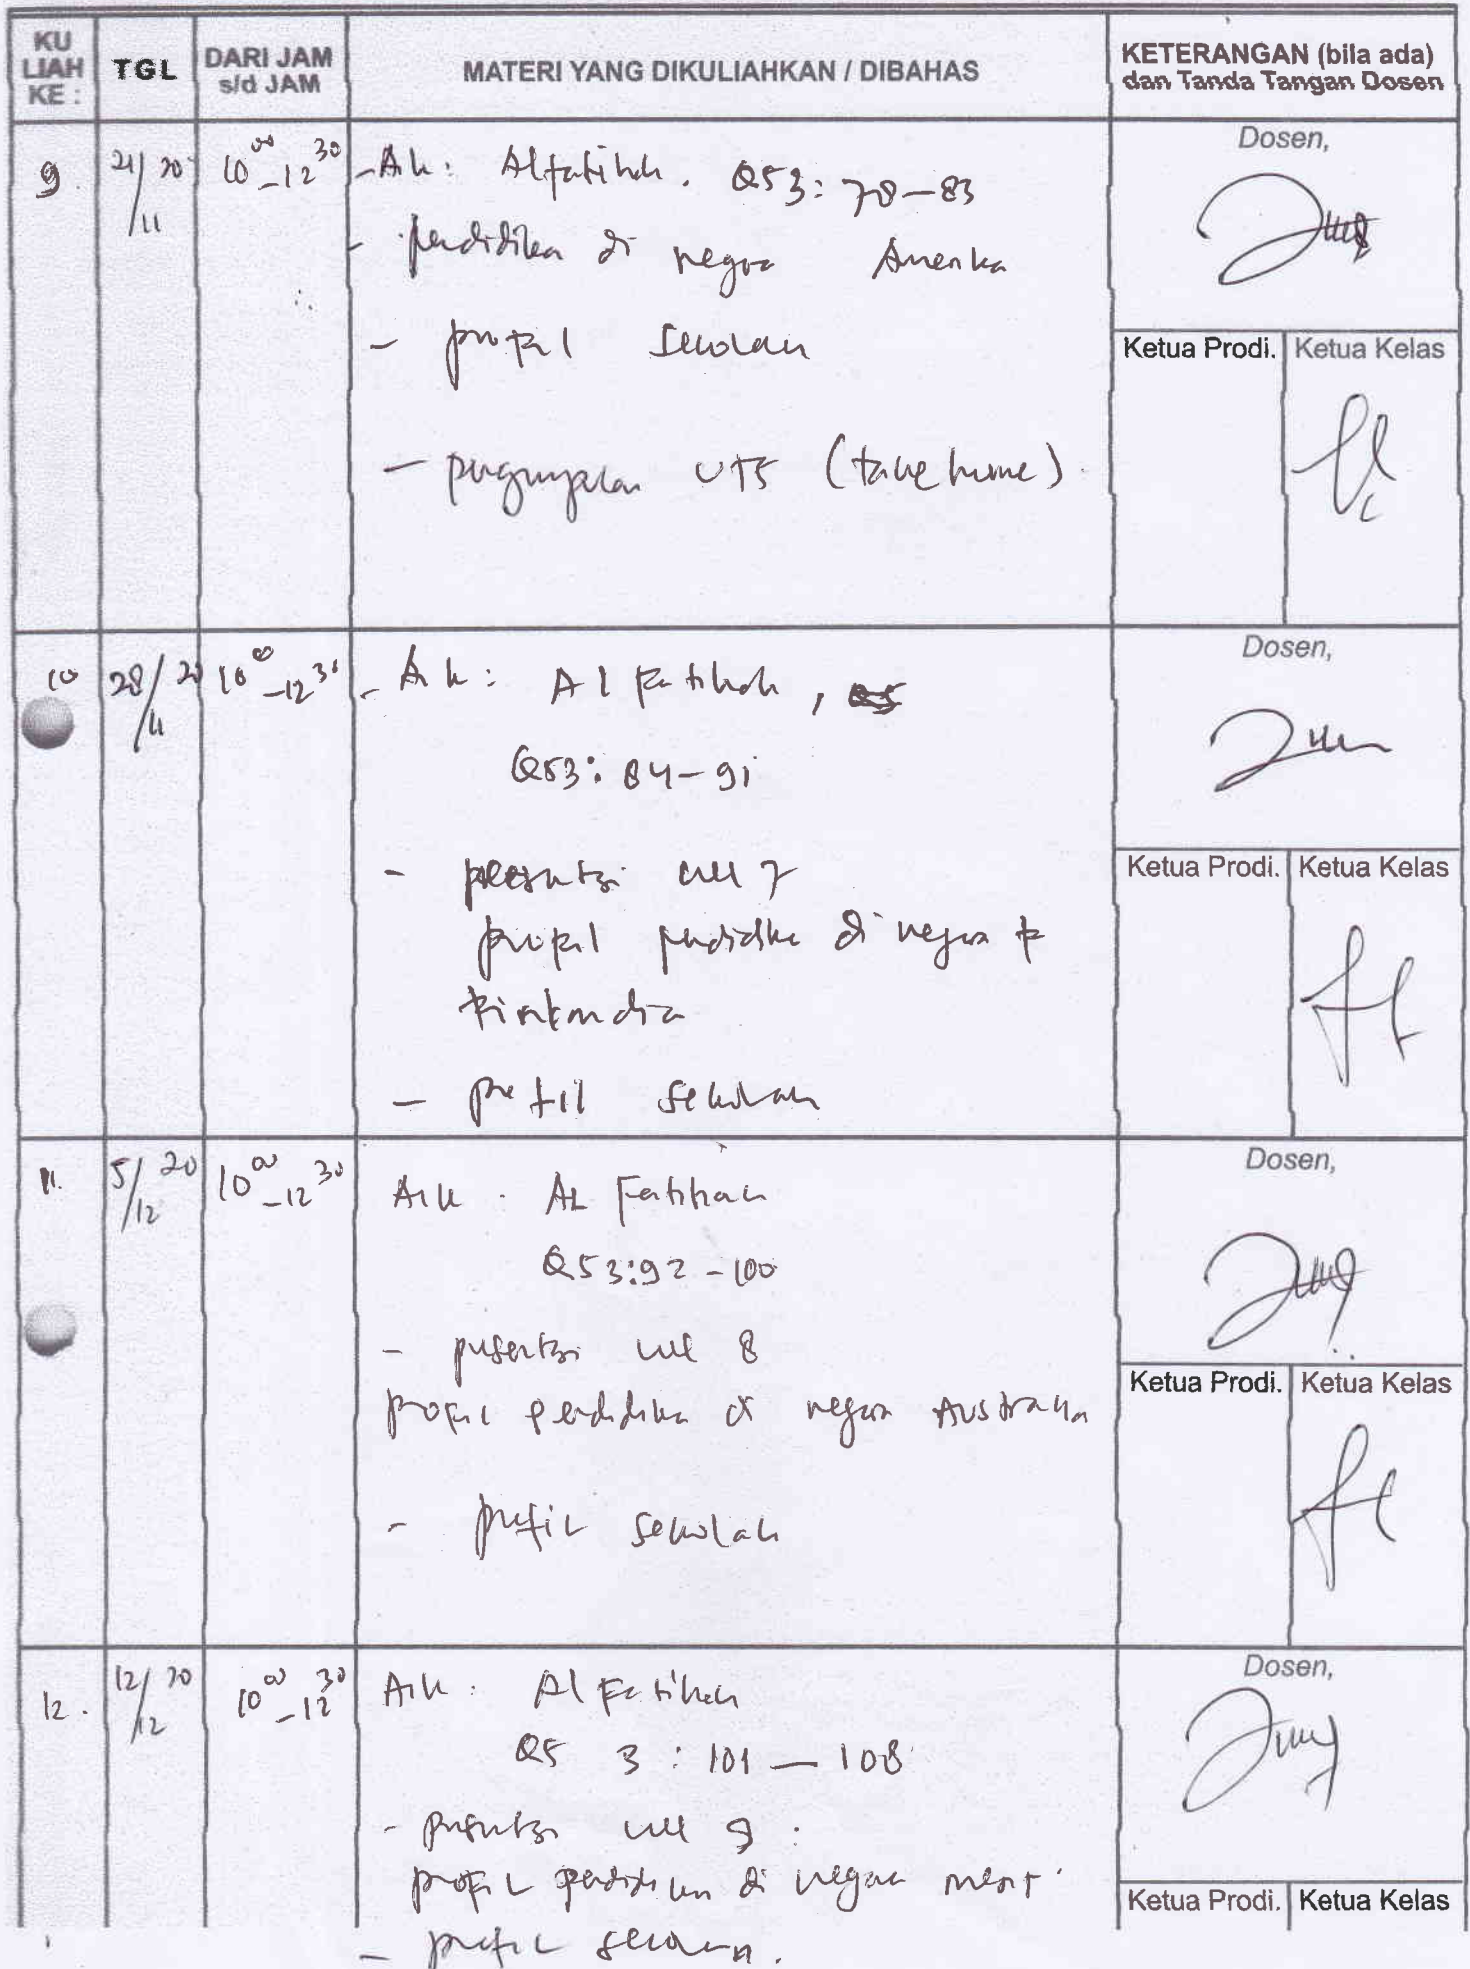 KU LIAH KE :
TGL
DARI JAM s/d JAM
MATERI YANG DIKULIAHKAN / DIBAHAS
KETERANGAN (bila ada)
dan Tanda Tangan Dosen
9. 21/11 20 10⁰⁰-12³⁰ - Aik: Alfatihah. QS 3: 78-83
- pendidikan di negara Amerika
- profil sekolah
- pengumpulan UTS (take home)
Dosen,
Ketua Prodi. Ketua Kelas
10 28/11 20 10⁰⁰-12³⁰ - Aik: Al Fatihah,
QS 3: 84-91
- presentasi kel 7
profil pendidikan di negara
Finlandia
- profil sekolah
Dosen,
Ketua Prodi. Ketua Kelas
11. 5/12 20 10⁰⁰-12³⁰ Aik. Al Fatihah
QS 3:92-100
- presentasi kel 8
profil pendidikan di negara Australia
- profil sekolah
Dosen,
Ketua Prodi. Ketua Kelas
12. 12/12 20 10⁰⁰-12³⁰ Aik: Al Fatihah
QS 3 : 101 - 108
- presentasi kel 9 :
profil pendidikan di negara
- profil sekolah.
Dosen,
Ketua Prodi. Ketua Kelas